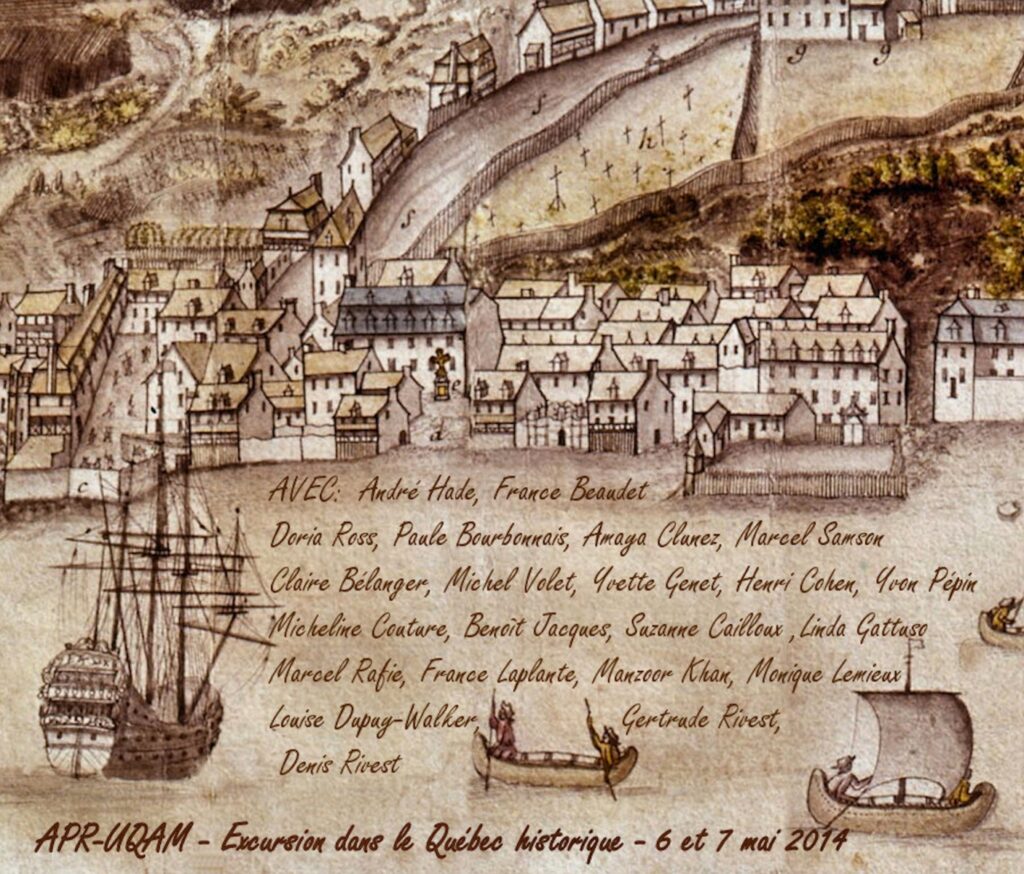 g g
s
h
s
e
d
c
AVEC: André Hade, France Beaudet
Doria Ross, Paule Bourbonnais, Amaya Clunez, Marcel Samson
Claire Bélanger, Michel Volet, Yvette Genet, Henri Cohen, Yvon Pépin
Micheline Couture, Benoît Jacques, Suzanne Cailloux ,Linda Gattuso
Marcel Rafie, France Laplante, Manzoor Khan, Monique Lemieux
Louise Dupuy-Walker, Gertrude Rivest,
Denis Rivest
APR-UQAM - Excursion dans le Québec historique - 6 et 7 mai 2014